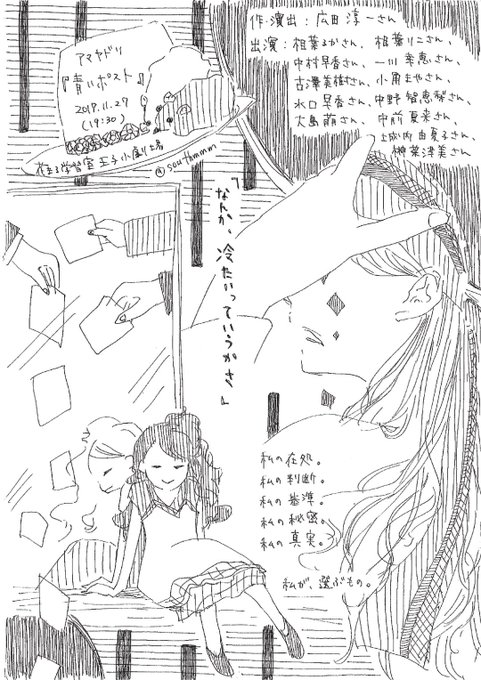 作・演出：広田淳一さん
出演：相葉るかさん、相葉りこさん、
中村早香さん、一川幸恵さん、
古澤美樹さん、小角まやさん、
水口早香さん、中野智恵梨さん、
大島萌さん、中前夏来さん、
上城内由夏子さん、
榊菜津美さん
アマヤドリ
『青いポスト』
2019.11.27
(19:30)
花まる学習会王子小劇場
@southmmm
「なんか、冷たいっていうかさ」
私の在処。
私の判断。
私の基準。
私の秘密。
私の真実。
私が、選ぶもの。